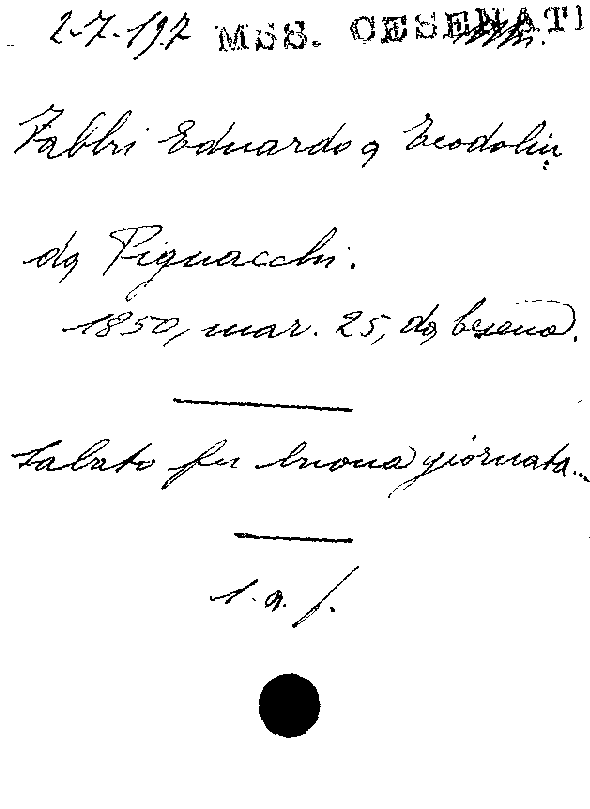 2-7-197 MSS. CESENATI
Fabbri Eduardo a Teodolin
da Pignacchi.
1850, mar. 25, da Cesena.
Sabato fu buona giornata...
1. a. f.